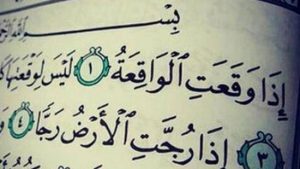 بِسْمِ ٱللَّهِ
إِذَا وَقَعَتِ ٱلْوَاقِعَةُ ١ لَيْسَ لِوَقْعَتِهَا
٣ إِذَا رُجَّتِ ٱلْأَرْضُ رَجًّا ٤